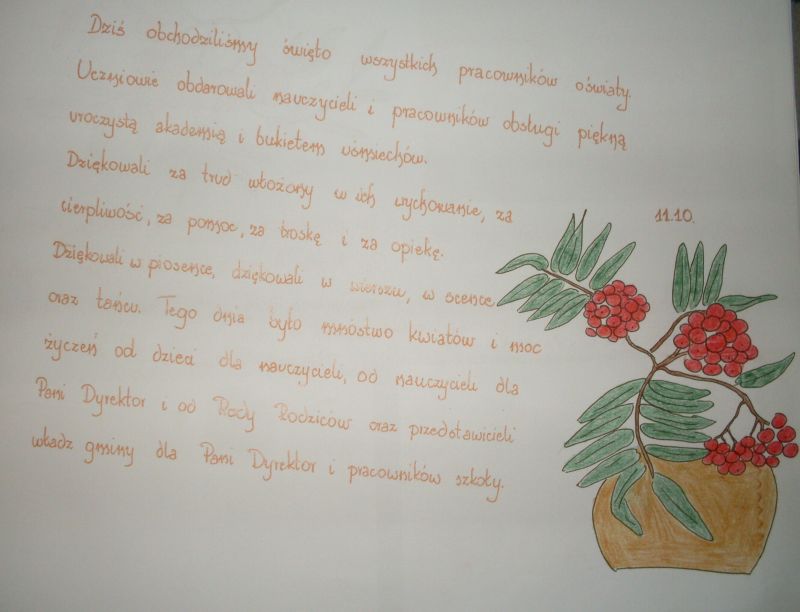 Dziś obchodziliśmy święto wszystkich pracowników oświaty.
Uczniowie obdarowali nauczycieli i pracowników obsługi piękną
uroczystą akademią i bukietem uśmiechów.
Dziękowali za trud włożony w ich wychowanie, za
cierpliwość, za pomoc, za troskę i za opiekę.
11.10.
Dziękowali w piosence, dziękowali w wierszu, w scence
oraz tańcu. Tego dnia było mnóstwo kwiatów i moc
życzeń od dzieci dla nauczycieli, od nauczycieli dla
Pani Dyrektor i od Rady Rodziców oraz przedstawicieli
władz gminy dla Pani Dyrektor i pracowników szkoły.